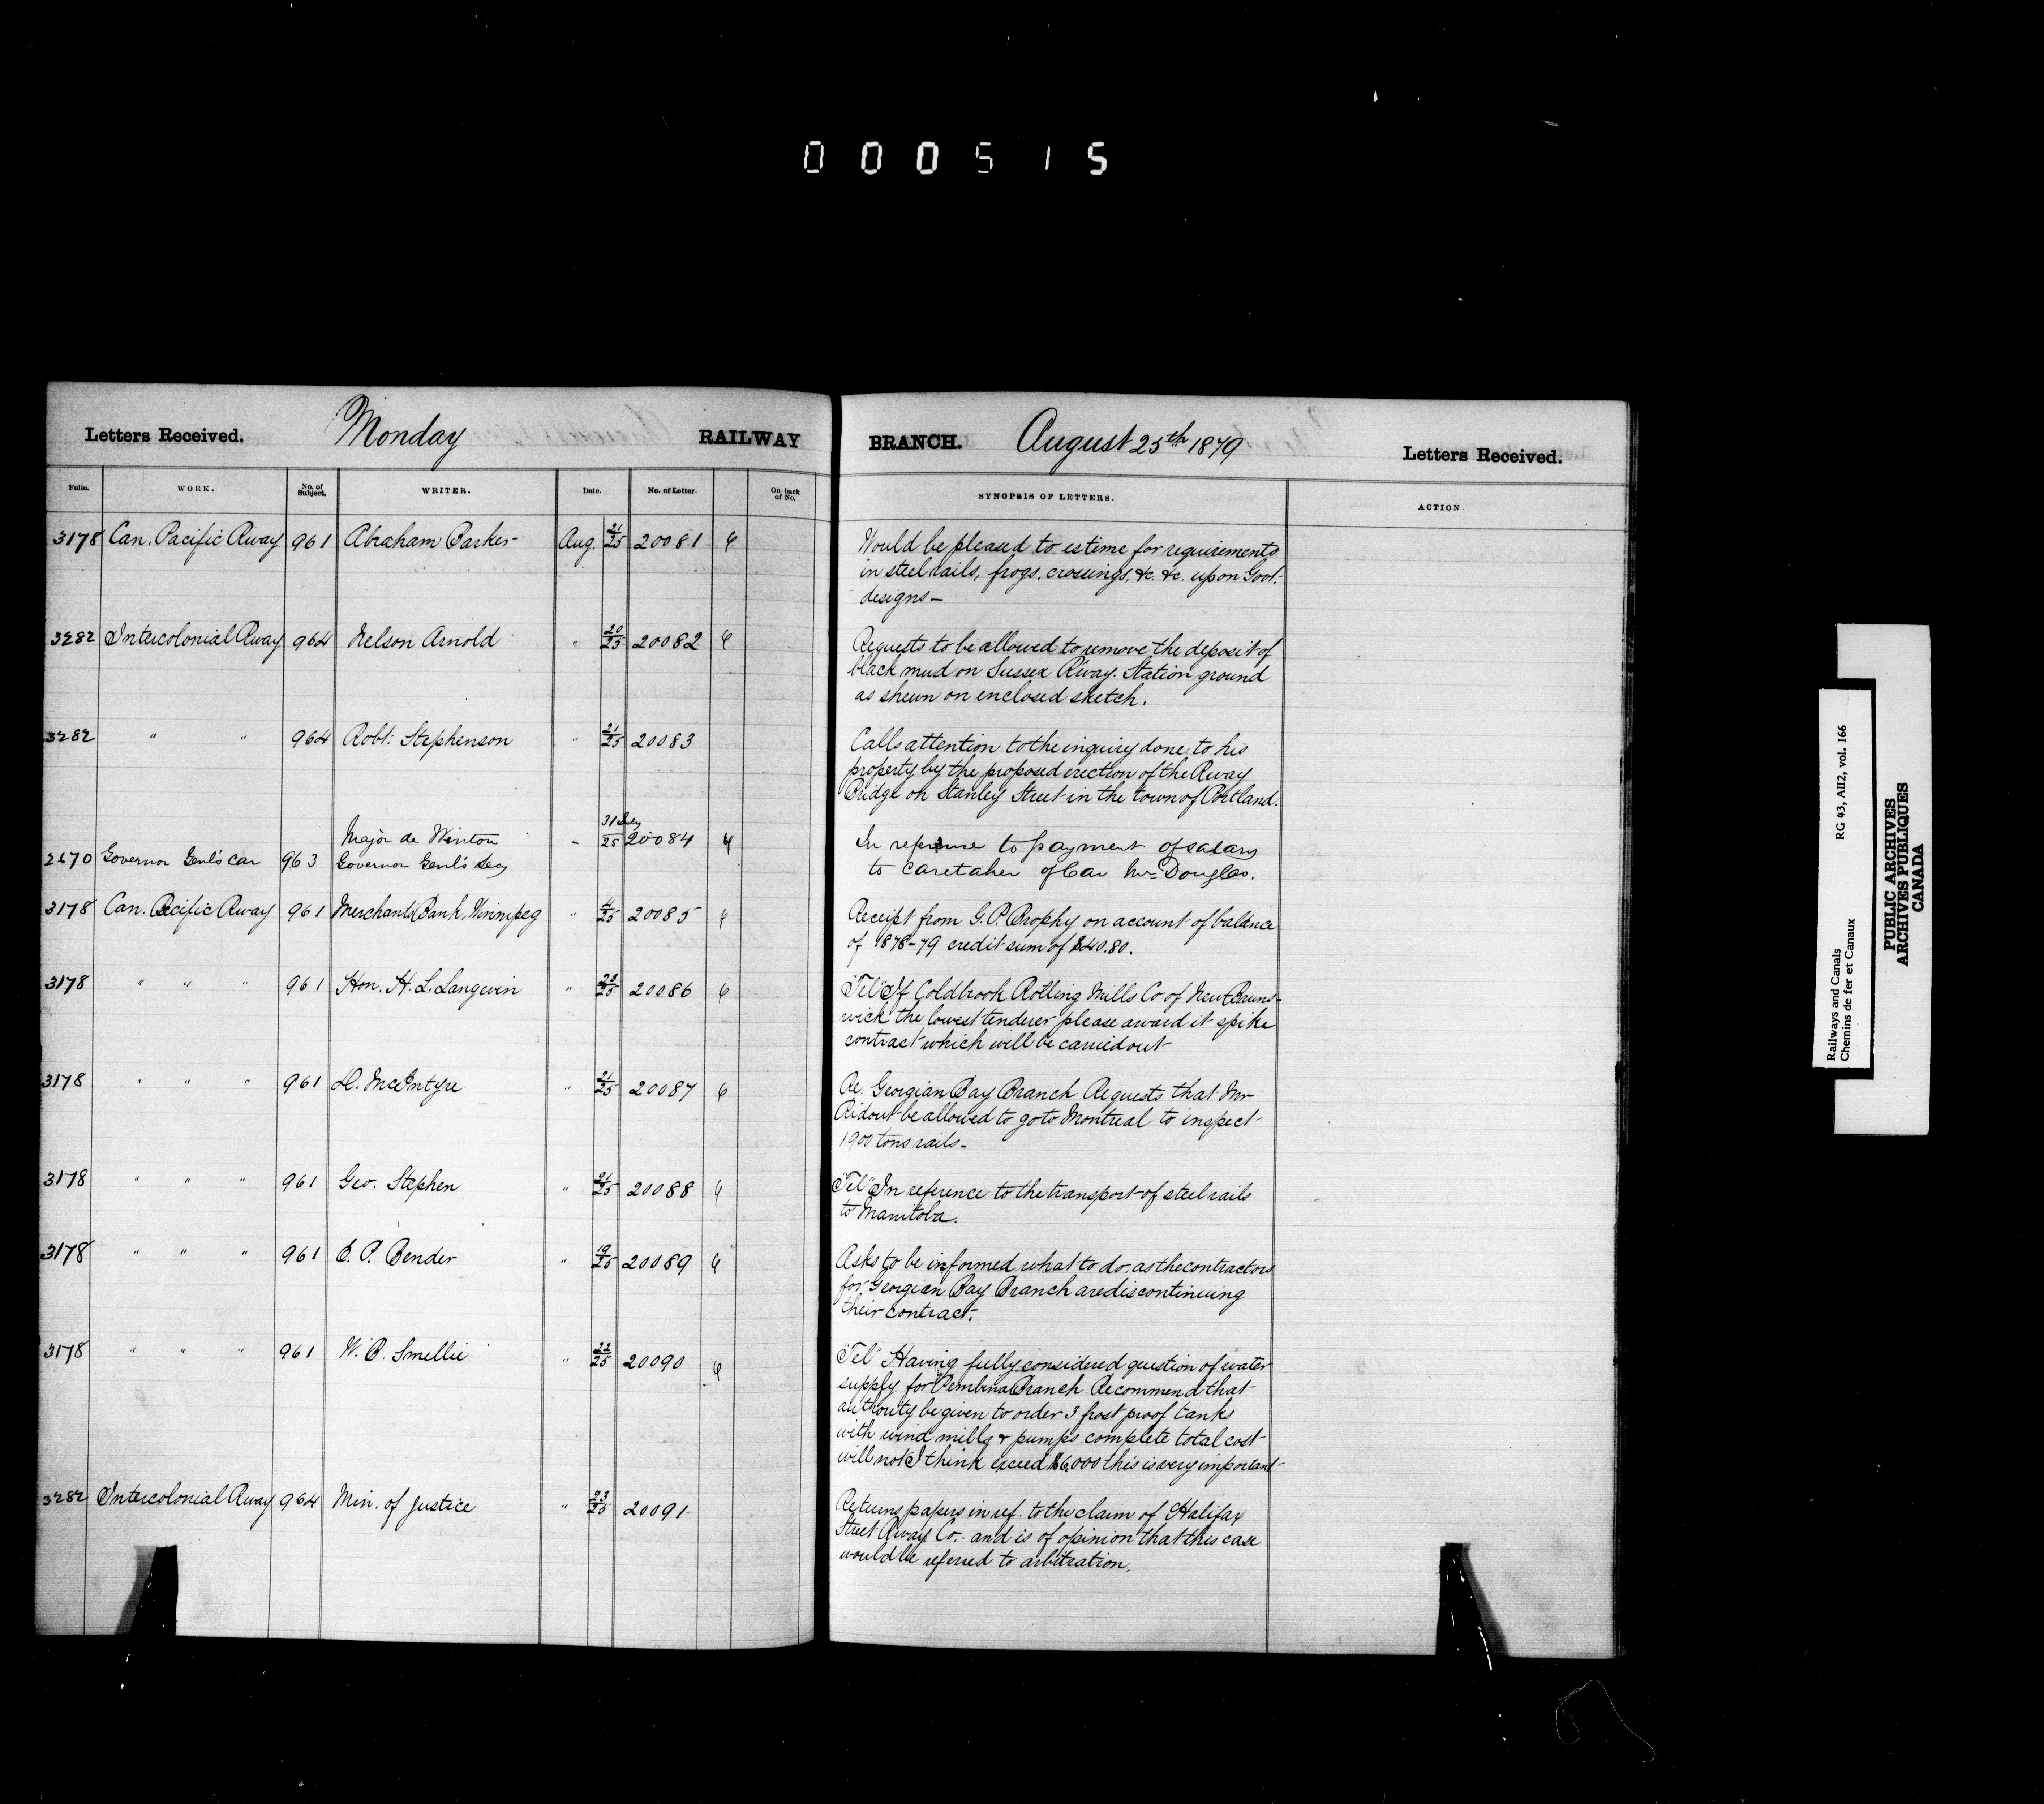 000515
Letters Received. Monday RAILWAY BRANCH. August 25th 1879 Letters Received.
Folio. WORK. No. of Subject. WRITER. Date. No. of Letter. On back of No. SYNOPSIS OF LETTERS. ACTION.
3178 Can. Pacific Rway 961 Abraham Parker Aug. 21/25 20081
Would be pleased to esteme for requirements
in steel rails, frogs, crossings, &c. &c. upon Govt.
designs—
3282 Intercolonial Rway 964 Nelson Arnold " 20/25 20082
Requests to be allowed to remove the deposit of
black mud on Sussex R'way. Station ground
as shewn on enclosed sketch.
3282 " " 964 Robt. Stephenson " 21/25 20083
Calls attention to the inquiry done to his
property by the proposed erection of the Rway
Bridge on Stanley Street in the town of Portland.
2270 Governor Genl's Car 963 Major de Winton
Governor Genl's Secy " 31 July/25 20084
In reference to payment of salary
to caretaker of Car Mr. Douglas.
3178 Can. Pacific Rway 961 Merchants Bank, Winnipeg " 4/25 20085
Receipt from G. P. Brophy on account of balance
of 1878-79 credit sum of $40.80.
3178 " " " 961 Hon. H. L. Langevin " 23/25 20086
"Tel" If Coldbrook Rolling Mills Co of New Bruns-
wick the lowest tenderer please award it spike
contract which will be carried out
3178 " " " 961 D. McIntyre " 21/25 20087
Re. Georgian Bay Branch Requests that Mr
Ridout be allowed to go to Montreal to inspect
1900 tons rails—
3178 " " " 961 Geo. Stephen " 21/25 20088
"Tel" In reference to the transport of steel rails
to Manitoba.
3178 " " " 961 E. P. Bender " 19/25 20089
Asks to be informed what to do, as the contractors
for Georgian Bay Branch are discontinuing
their contract.
3178 " " " 961 W. B. Smellie " 22/25 20090
"Tel" Having fully considered question of water
supply for Pembina Branch Recommend that
authority be given to order 3 frost proof tanks
with wind mills & pumps complete total cost
will not I think exceed $6,000 this is very important
3282 Intercolonial Rway 964 Min. of Justice " 23/25 20091
Returns papers in ref. to the claim of Halifax
Street Rway Co. and is of opinion that this case
would be referred to arbitration.
Railways and Canals RG 43, AII2, vol. 166
Chemins de fer et Canaux
PUBLIC ARCHIVES
ARCHIVES PUBLIQUES
CANADA